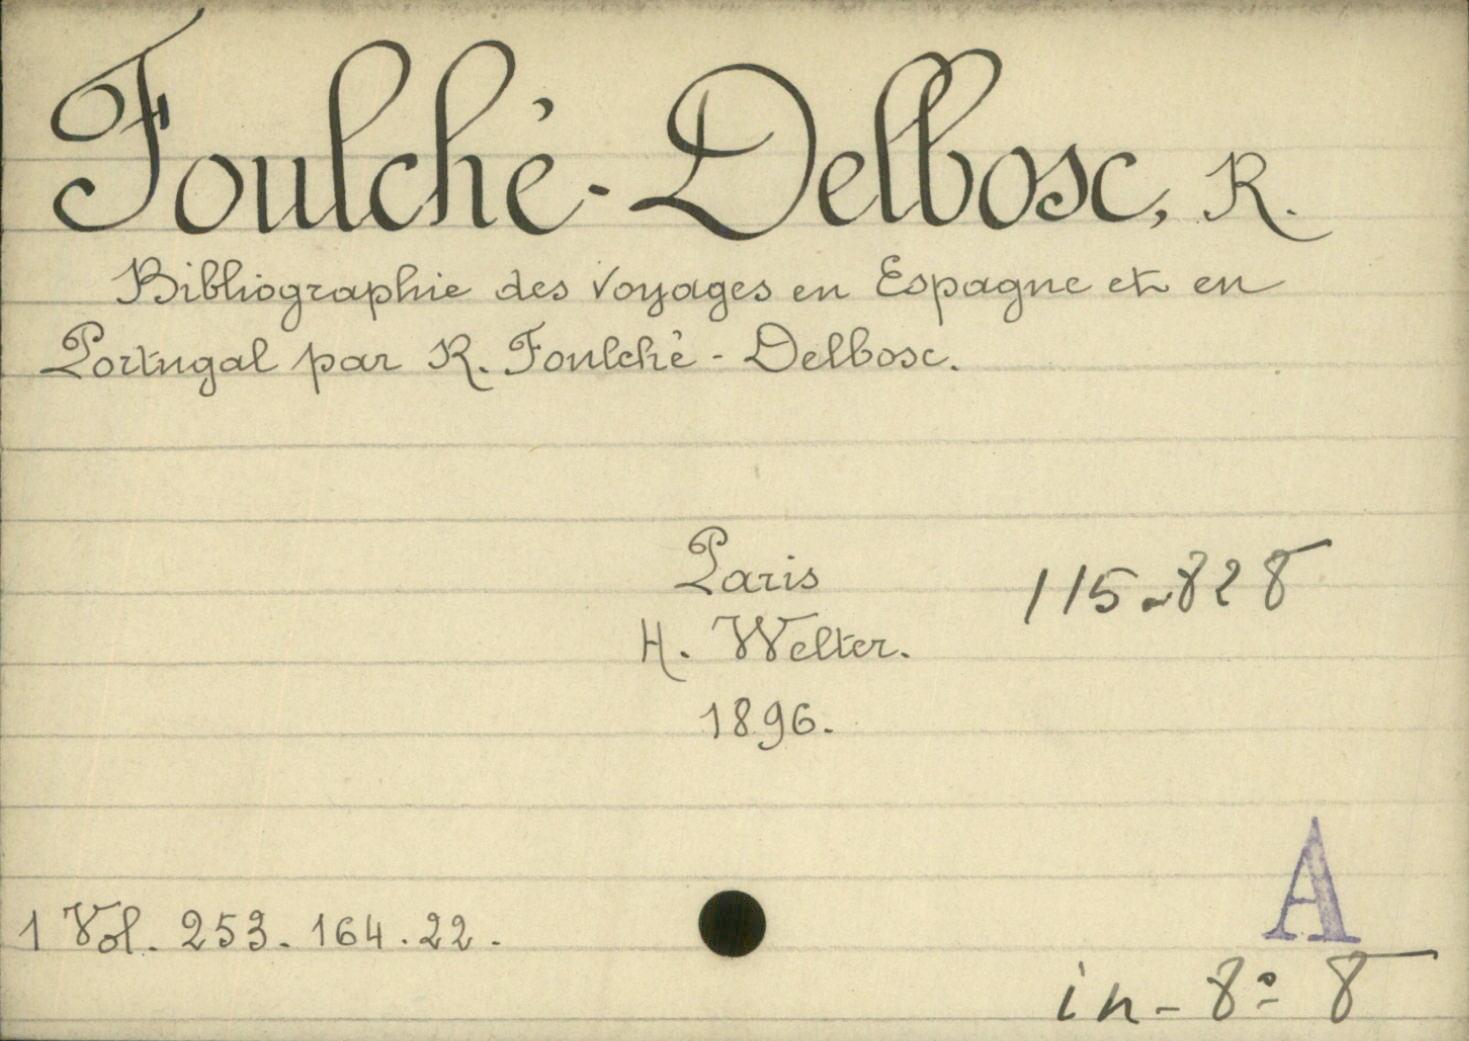 Foulché-Delbosc, R.
Bibliographie des Voyages en Espagne et en
Portugal par R. Foulché-Delbosc.
Paris
115-828
H. Welter.
1896.
A
1 Vol. 253. 164. 22.
in-8º 8